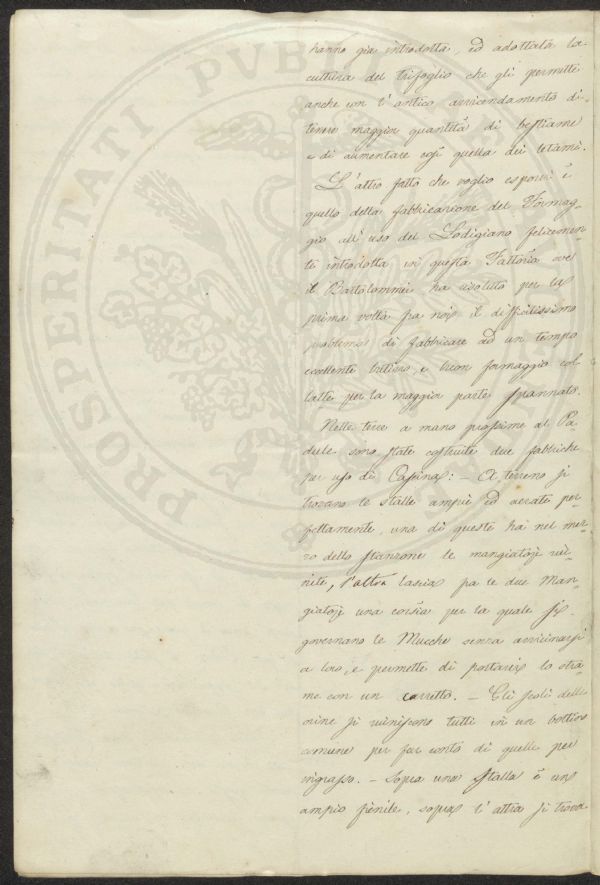 hanno già introdotta, ed adottata la
cultura del trifoglio che gli permette
anche con l'antico avvicendamento di
tenere maggior quantità di bestiame
e di aumentare così quella dei letami.
L'altro fatto che voglio esporvi è
quello della fabbricazione del Formag-
gio all'uso del Lodigiano felicemen-
te introdotta in questa Fattoria ove
il Bartolommei ha risoluto per la
prima volta fra noi il difficilissimo
problema di fabbricare ad un tempo
eccellente butirro, e buon formaggio col
latte per la maggior parte spannato.
Nelle terre a mano prossime al Pa-
dule sono state costruite due fabbriche
per uso di Cassina: - A terreno si
trovano le stalle ampie ed aerate per-
fettamente, una di queste ha nel mez-
zo dello stanzone le mangiatoje riu-
nite, l'altra lascia fra le due Man-
giatoje una corsia per la quale si
governano le Mucche senza avvicinarsi
a loro, e permette di portarvi lo stra-
me con un carretto. - Gli scoli delle
orine si riuniscono tutti in un bottino
comune per far conto di quelle per
ingrasso. - Sopra una stalla è un
ampio fienile, sopra l'altra si trova
PROSPERITATI PUBLICAE